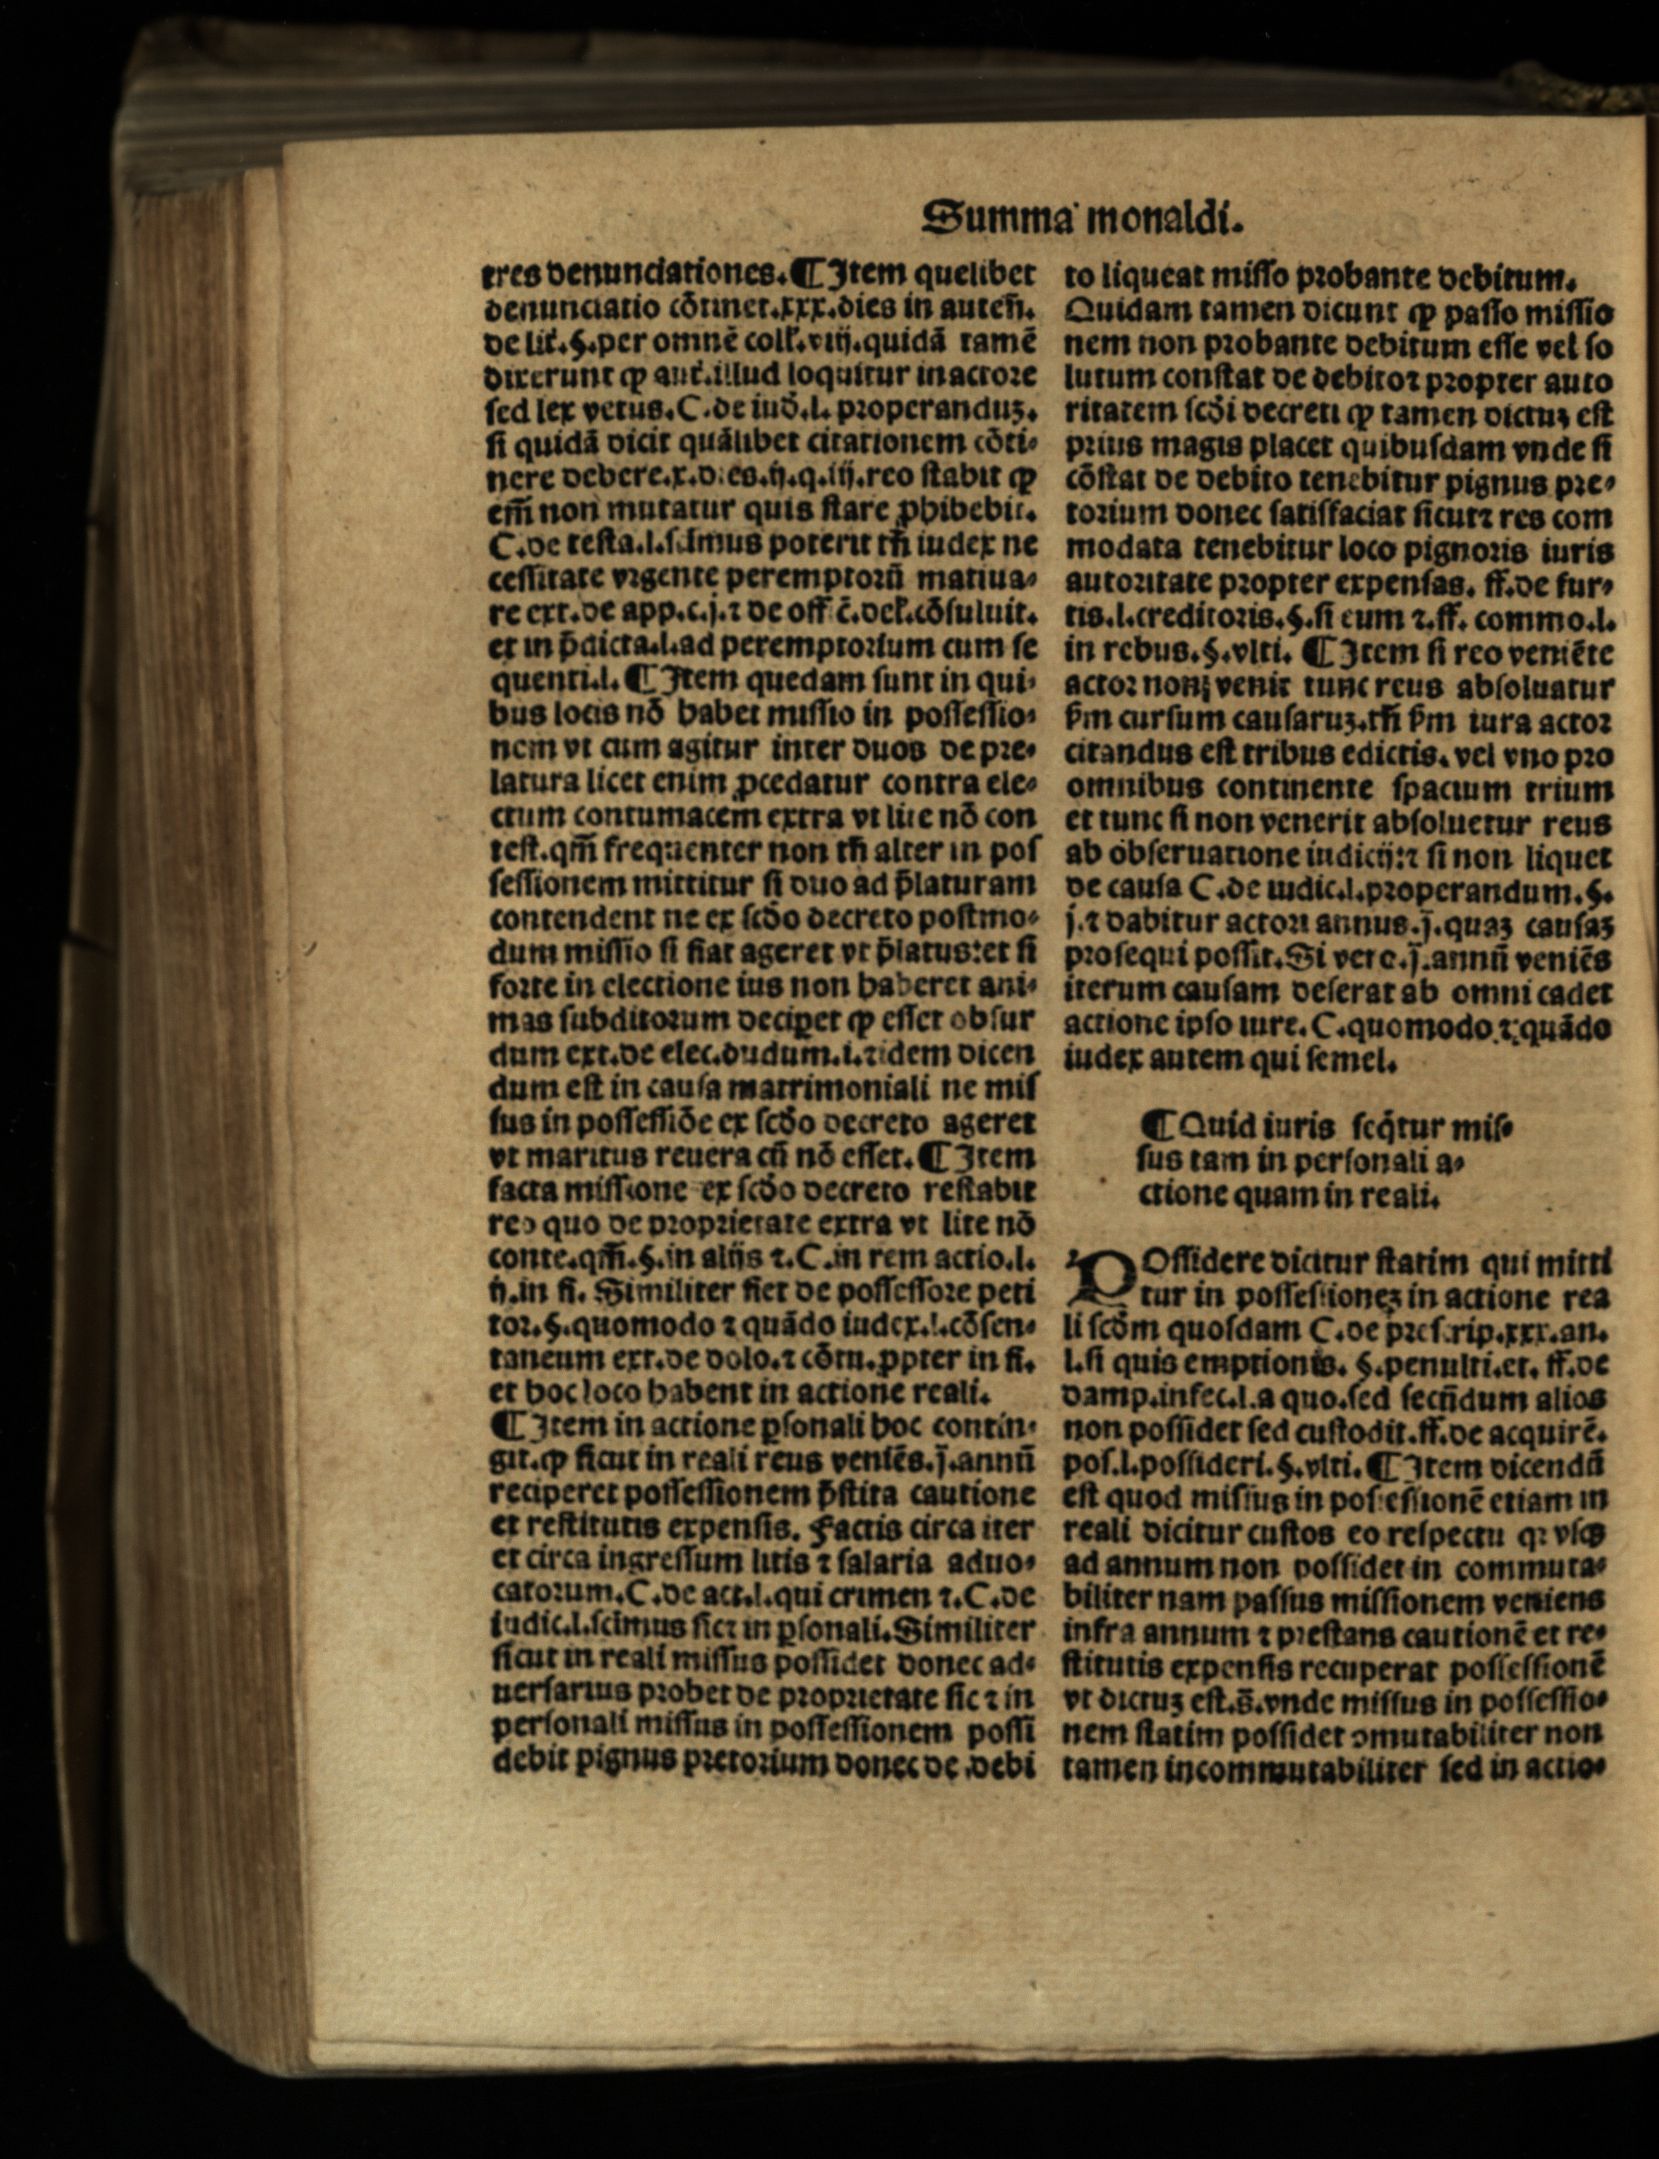 Summa monaldi.
tres denunciationes.¶Item quelibet
denunciatio cōtinet.xxx.dies in auteñ.
de lit̛.§.per omnē coll̛.viij.quidā tamē
dixerunt ꝙ aut̛.illud loquitur in actore
sed lex vetus.C.de iuđ.l. properanduꝫ.
si quidā dicit quālibet citationem cōti⸗
nere debere.x.dies.ij.q.iij.reo stabit ꝙ
em̄ non mutatur quis stare ꝓhibebit.
C.de testa.l.scimus poterit tñ iudex ne
cessitate vrgente peremptoriū matiua⸗
re ext.de app.c.j.⁊ de off c̄.del̛.cōsuluit.
et in p̄dicta.l.ad peremptorium cum se
quenti.l.¶Item quedam sunt in qui⸗
bus locis nō habet missio in possessio⸗
nem vt cum agitur inter duos de pre⸗
latura licet enim ꝓcedatur contra ele⸗
ctum contumacem extra vt lite nō con
test.qm̄ frequenter non tñ alter in pos
sessionem mittitur si duo ad p̄laturam
contendent ne ex scđo decreto postmo⸗
dum missio si fiat ageret vt p̄latus:et si
forte in electione ius non haberet ani⸗
mas subditorum deciꝑet ꝙ esset obsur
dum ext.de elec.dudum.i.⁊idem dicen
dum est in causa matrimoniali ne mis
sus in possessiōe ex scđo decreto ageret
vt maritus reuera cū nō esset.¶Item
facta missione ex scđo decreto restabit
reo quo de proprietate extra vt lite nō
conte.qm̄.§.in alijs ⁊.C.in rem actio.l.
ij.in fi. Similiter fiet de possessore peti
tor.§.quomodo ⁊ quādo iudex.l.cōsen⸗
taneum ext.de dolo.⁊ cōtu.ꝓpter in fi.
et hoc loco habent in actione reali.
¶Item in actione ꝑsonali hoc contin⸗
git.ꝙ sicut in reali reus veniēs.j̄.annū
reciperet possessionem p̄stita cautione
et restitutis expensis. Factis circa iter
et circa ingressum litis ⁊ salaria aduo⸗
catorum.C.de act.l.qui crimen ⁊.C.de
iudic.l.scimus sic⁊ in ꝑsonali.Similiter
sicut in reali missus possidet donec ad⸗
uersarius probet de proprietate sic ⁊ in
personali missus in possessionem possi
debit pignus pretorium donec de debi
to liqueat misso probante debitum.
Quidam tamen dicunt ꝙ passo missio
nem non probante debitum esse vel so
lutum constat de debitor propter auto
ritatem scđi decreti ꝙ tamen dictuꝫ est
prius magis placet quibusdam vnde si
cōstat de debito tenebitur pignus pre⸗
torium donec satisfaciat sicut⁊ res com
modata tenebitur loco pignoris iuris
autoritate propter expensas. ff.de fur⸗
tis.l.creditoris.§.si eum ⁊.ff. commo.l.
in rebus.§.vlti. ¶Item si reo veniēte
actor non venit tunc reus absoluatur
ẜm cursum causaruꝫ.tñ ẜm iura actor
citandus est tribus edictis. vel vno pro
omnibus continente spacium trium
et tunc si non venerit absoluetur reus
ab obseruatione iudicij:⁊ si non liquet
de causa C.de iudic.l.properandum.§.
j.⁊ dabitur actori annus.j̄.quaꝫ causaꝫ
prosequi possit.Si vero.j̄.annū veniēs
iterum causam deserat ab omni cadet
actione ipso iure. C.quomodo ⁊ quādo
iudex autem qui semel.
¶Quid iuris seq̄tur mis⸗
sus tam in personali a⸗
ctione quam in reali.
POssidere dicitur statim qui mitti
tur in possessioneꝫ in actione rea
li scđm quosdam C.de prescrip.xxx.an.
l.si quis emptionis. §.penulti.et. ff.de
damp.infec.l.a quo.sed secūdum alios
non possidet sed custodit.ff.de acquirē.
pos.l.possideri.§.vlti.¶Item dicendū
est quod missus in possessionē etiam in
reali dicitur custos eo respectu qꝛ vsqꝫ
ad annum non possidet in commuta⸗
biliter nam passus missionem veniens
infra annum ⁊ prestans cautionē et re⸗
stitutis expensis recuperat possessionē
vt dictuꝫ est.s̄.vnde missus in possessio⸗
nem statim possidet ꝯmutabiliter non
tamen incommutabiliter sed in actio⸗